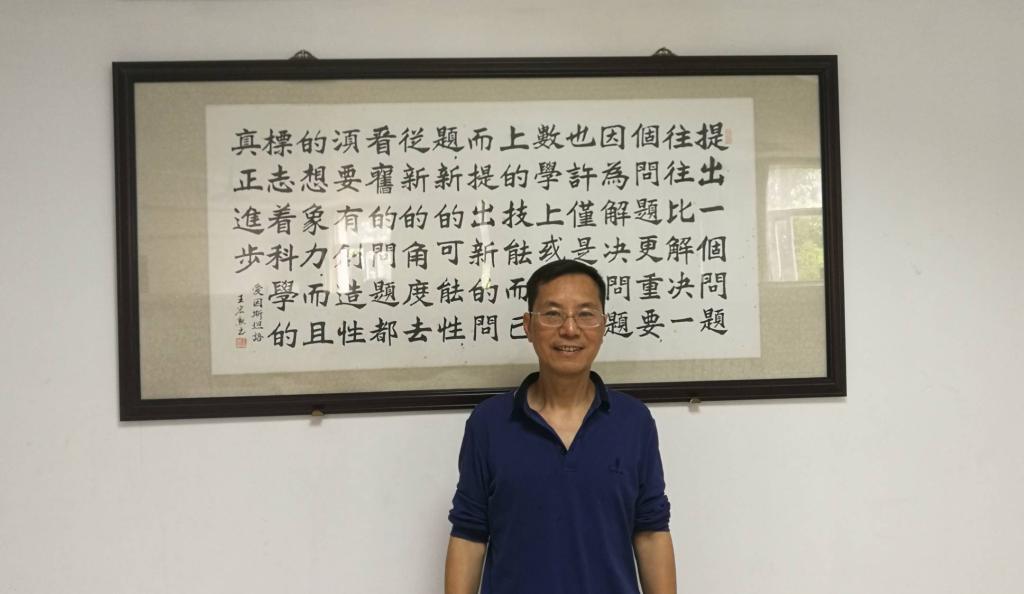 提出一個問題
往往比解决一
個問題更重要
因為解决問題
也許僅是
數學上或
上的技能而已
而提出新的問
題新的可能性
從新的角度去
看舊的問題都
湏要有創造性
的想象力而且
標志着科學的
真正進步
愛因斯坦語
王